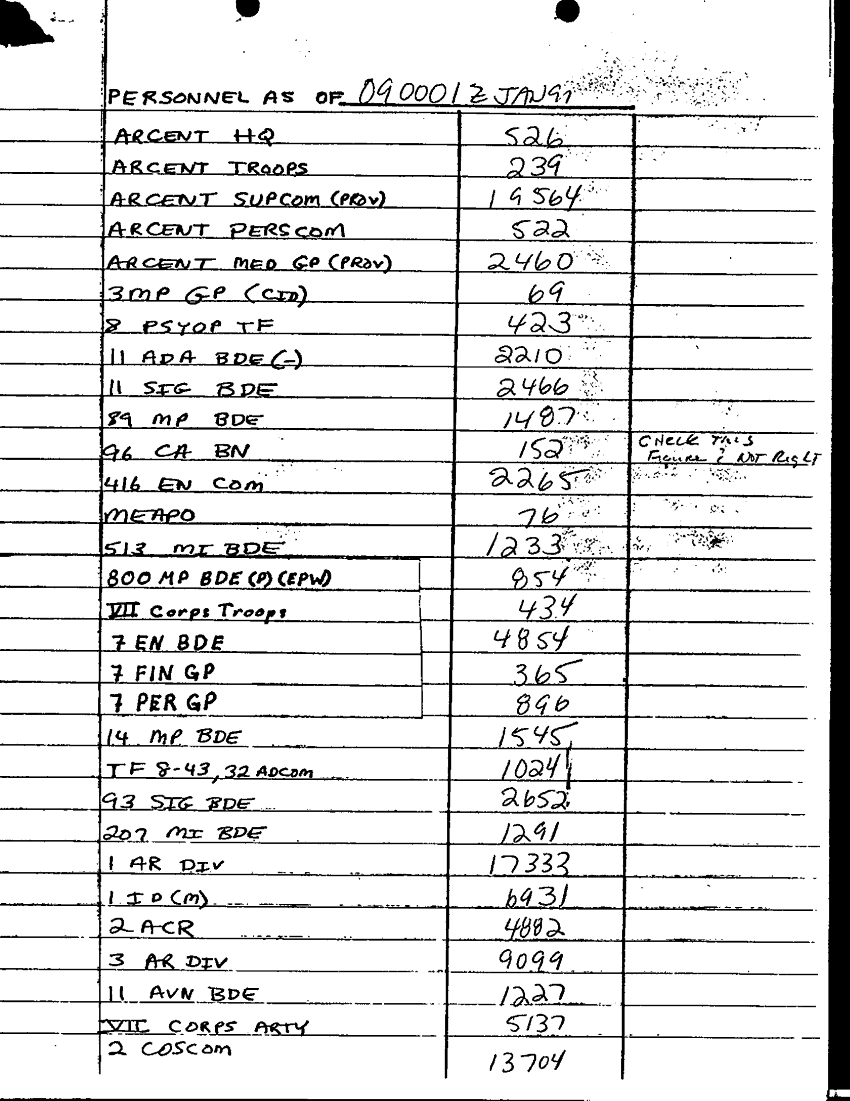 PERSONNEL AS OF 090001Z JAN91
ARCENT HQ 526
ARCENT TROOPS 239
ARCENT SUPCOM (PROV) 19564
ARCENT PERSCOM 522
ARCENT MED GP (PROV) 2460
3 MP GP (CID) 69
8 PSYOP TF 423
11 ADA BDE (-) 2210
11 SIG BDE 2466
89 MP BDE 1487
96 CA BN 152 CHECK THIS
Figure NOT Right
416 EN COM 2265
MEAPO 76
513 MI BDE 1233
800 MP BDE (P) (EPW) 854
VII Corps Troops 434
7 EN BDE 4854
7 FIN GP 365
7 PER GP 896
14 MP BDE 1545
TF 8-43, 32 ADCOM 1024
93 SIG BDE 2652
207 MI BDE 1291
1 AR DIV 17333
1 ID (M) 6931
2 ACR 4882
3 AR DIV 9099
11 AVN BDE 1227
VII CORPS ARTY 5137
2 COSCOM 13704